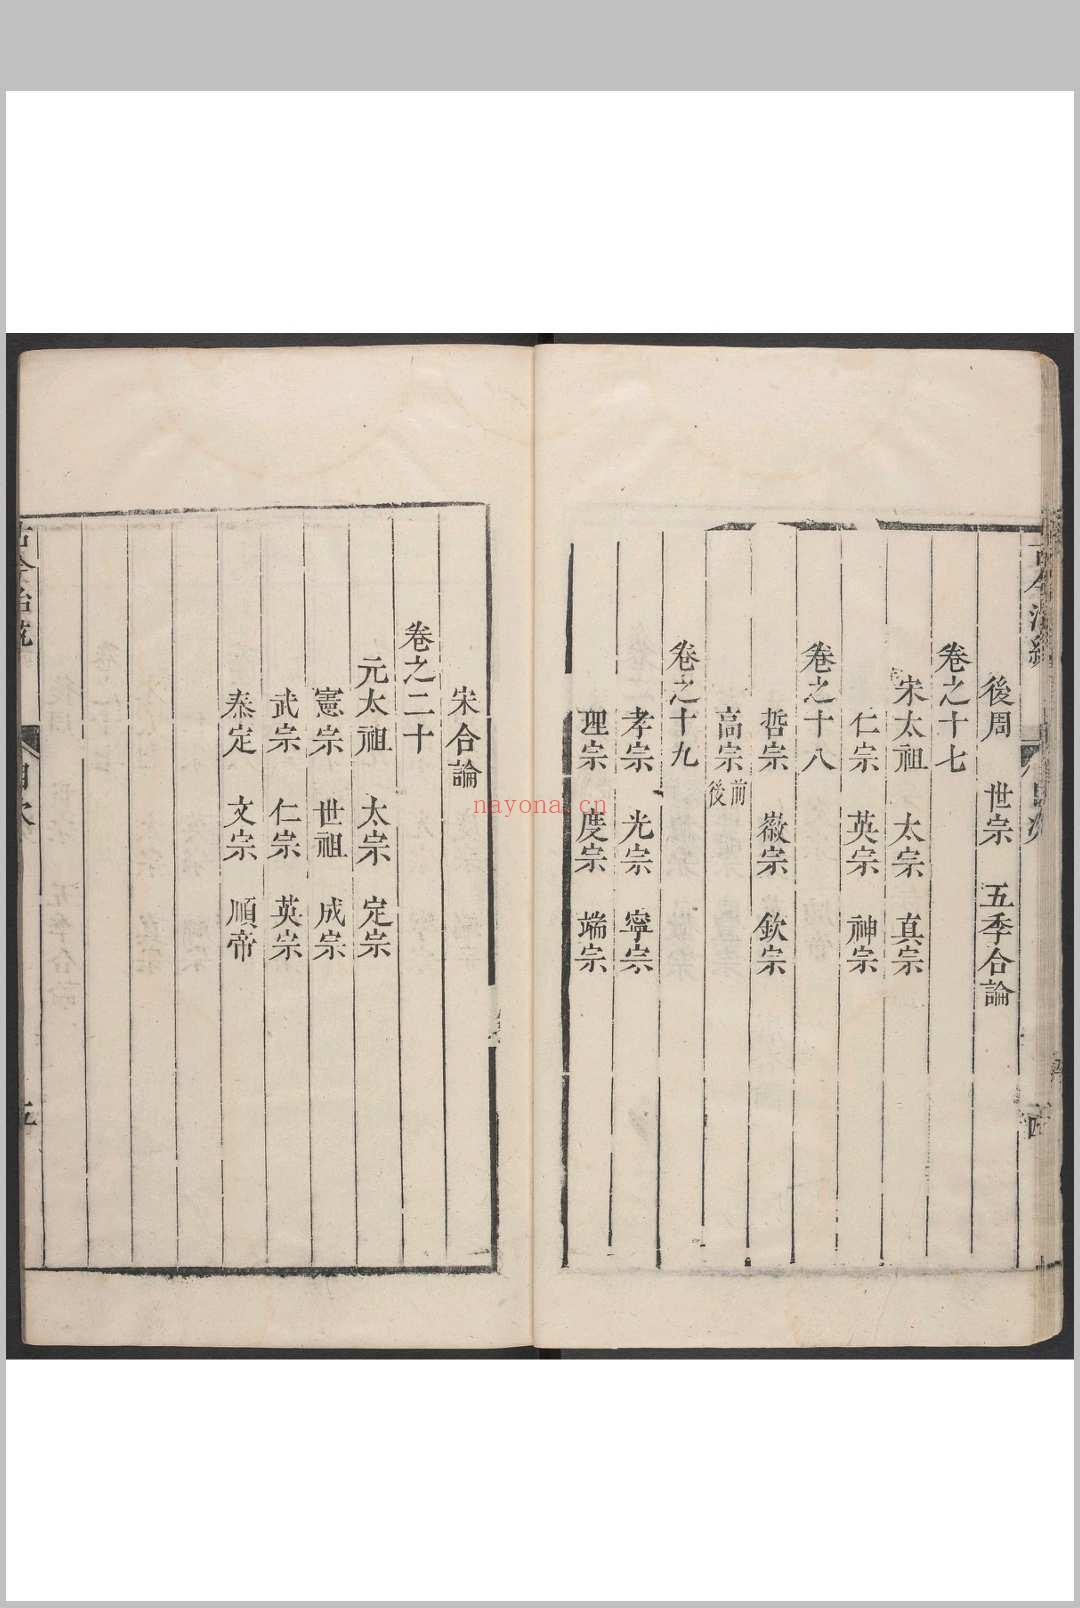 後周 世宗 五季合論
卷之十七
宋太祖 太宗 真宗
仁宗 英宗 神宗
卷之十八
哲宗 徽宗 欽宗
高宗前後
卷之十九
孝宗 光宗 寧宗
理宗 度宗 端宗
宋合論
卷之二十
元太祖 太宗 定宗
憲宗 世祖 成宗
武宗 仁宗 英宗
泰定 文宗 順帝
nayona.cn